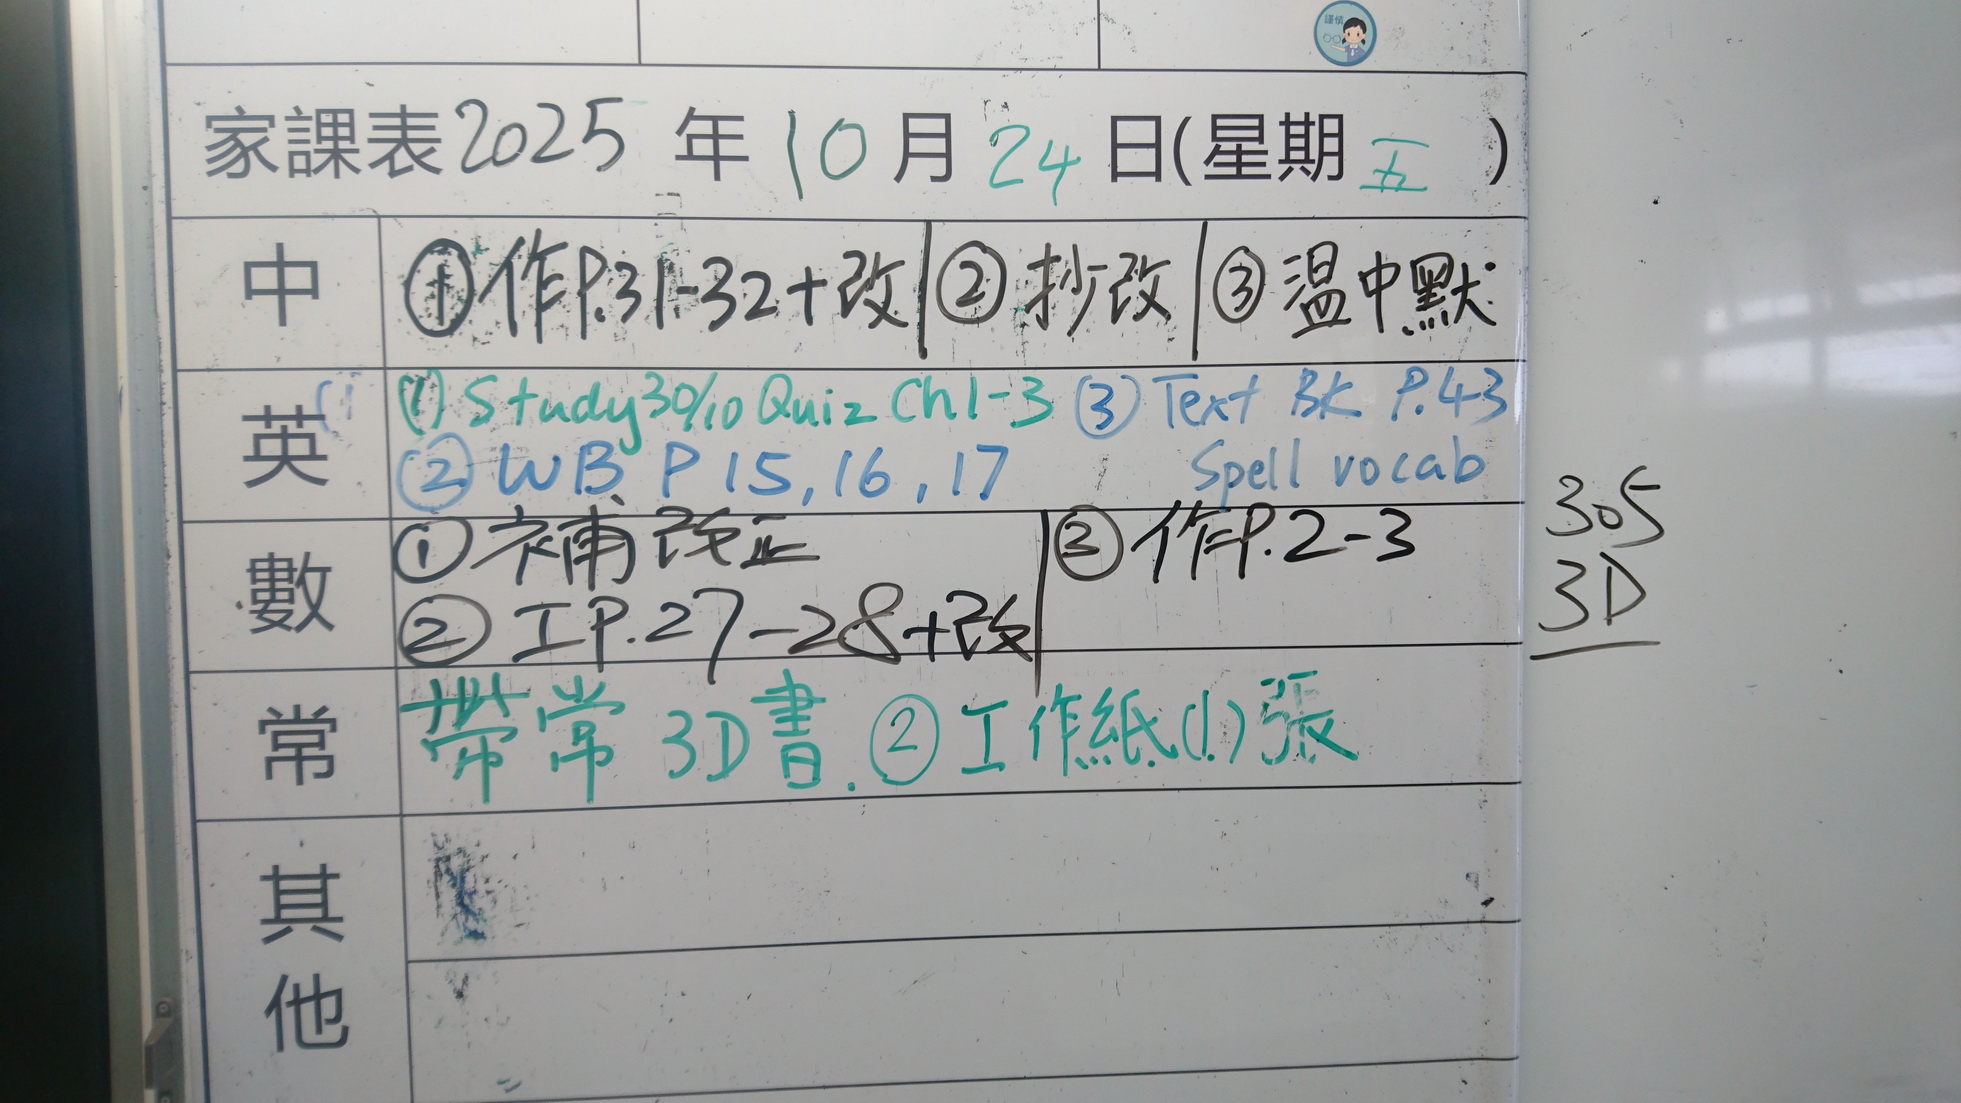 謹慎
家課表2025年10月24日(星期五)
中 ①作P.31-32+改 ②抄改 ③温中默
英 (1) Study 30/10 Quiz Ch1-3 ③ Text BK P.43
② WB P 15, 16, 17 Spell vocab
數 ①補改正 ③作P.2-3
②工P.27-28+改
305
3D
常 帶常3D書. ②工作紙(1)張
其他